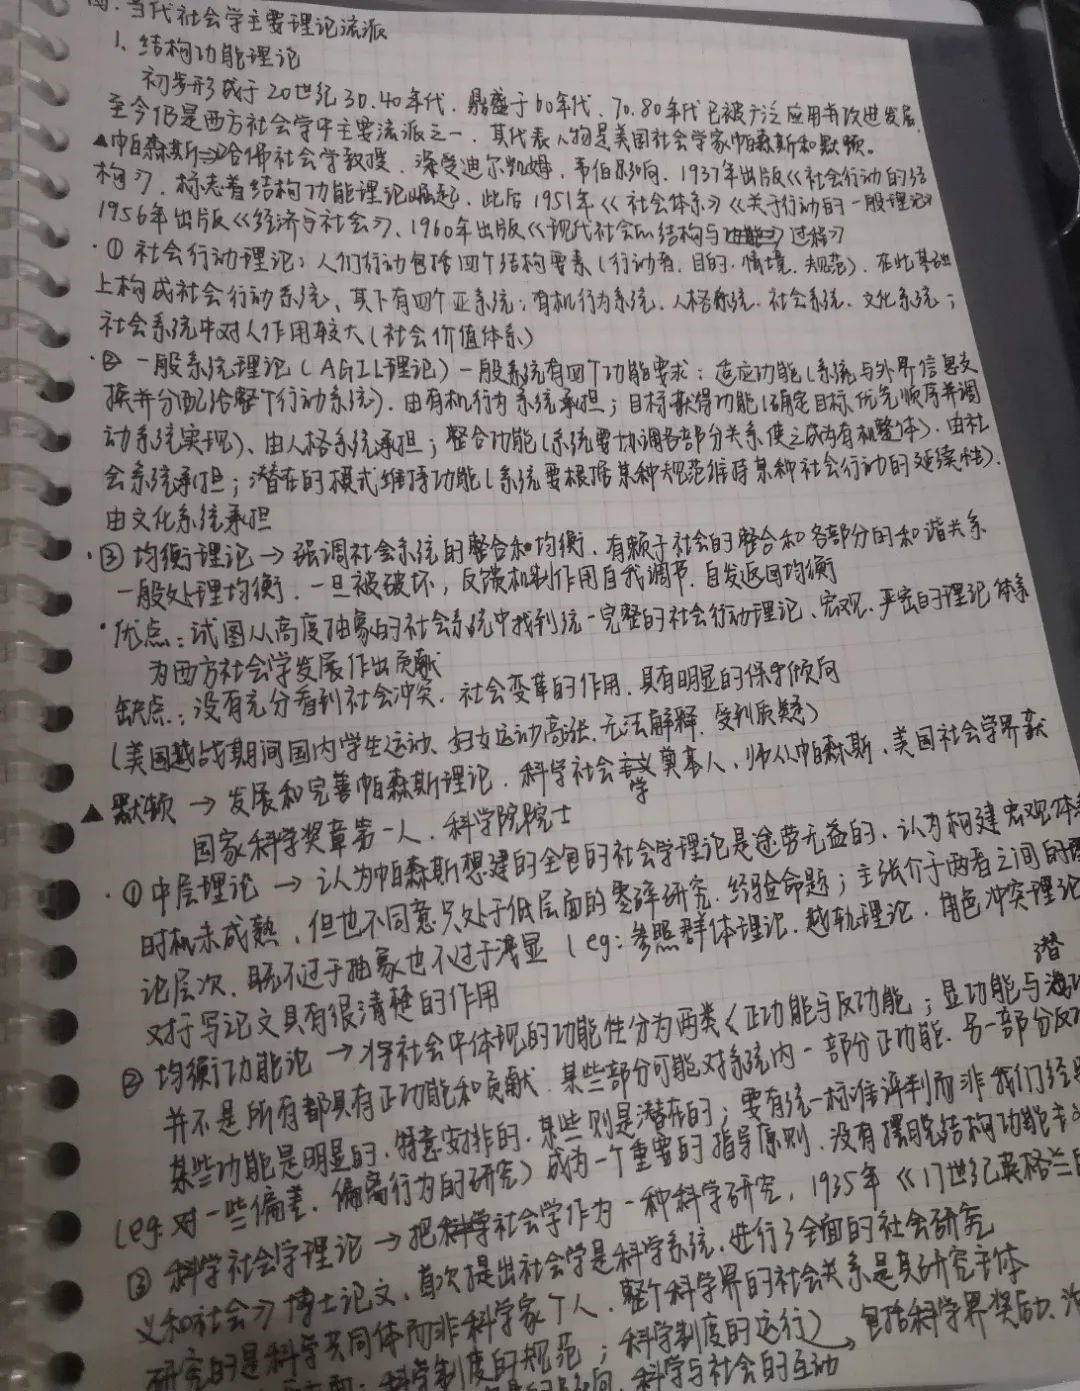 四.当代社会学主要理论流派
1、结构功能理论
初步形成于20世纪30.40年代.鼎盛于60年代.70.80年代已被广泛应用有改进发展,
至今仍是西方社会学中主要流派之一.其代表人物是美国社会学家帕森斯和默顿。
▲帕森斯⇒哈佛社会学教授.深受迪尔凯姆,韦伯影响.1937年出版《社会行动的结
构》,标志着结构功能理论崛起.此后1951年《社会体系》《关于行动的一般理论》
1956年出版《经济与社会》、1960年出版《现代社会的结构与过程》
·①社会行动理论:人们行动包括四个结构要素(行动者.目的.情境.规范).在此基础
上构成社会行动系统、其下有四个亚系统:有机行为系统.人格系统.社会系统.文化系统;
社会系统中对人作用较大(社会价值体系)
·②一般系统理论(AGIL理论)一般系统有四个功能要求:适应功能(系统与外界信息交
换并分配给整个行动系统).由有机行为系统承担;目标获得功能(确定目标优先顺序并调
动系统实现)、由人格系统承担;整合功能(系统要协调各部分关系使之成为有机整体).由社
会系统承担;潜在的模式维持功能(系统要根据某种规范维持某种社会行动的延续性).
由文化系统承担
·③均衡理论→强调社会系统的整合和均衡.有赖于社会的整合和各部分的和谐关系
一般处理均衡.一旦被破坏,反馈机制作用自我调节.自发返回均衡
·优点:试图从高度抽象的社会系统中找到统一完整的社会行动理论、宏观.严密的理论体系
为西方社会学发展作出贡献
缺点:没有充分看到社会冲突.社会变革的作用.具有明显的保守倾向
(美国越战期间国内学生运动、妇女运动高涨.无法解释.受到质疑)
▲默顿→发展和完善帕森斯理论.科学社会学奠基人.师从帕森斯、美国社会学界获
国家科学奖章第一人.科学院院士
·①中层理论→认为帕森斯想建的全包的社会学理论是徒劳无益的.认为构建宏观体
时机未成熟,但也不同意只处于低层面的零碎研究.经验命题;主张介于两者之间的
论层次.既不过于抽象也不过于浅显(eg:参照群体理论.越轨理论.角色冲突理论
对于写论文具有很清楚的作用
②均衡功能论→将社会中体现的功能性分为两类《正功能与反功能;显功能与潜功
并不是所有都具有正功能和贡献.某些部分可能对系统内一部分正功能.另一部分反
某些功能是明显的.特意安排的.某些则是潜在的;要有统一标准评判而非我们经
(eg.对一些偏差.偏离行为的研究)成为一个重要的指导原则.没有摆脱结构功能主
③科学社会学理论→把科学社会学作为一种科学研究,1935年《17世纪英格兰的
义和社会》博士论文、首次提出社会学是科学系统.进行了全面的社会研究
研究的是科学共同体而非科学家个人.整个科学界的社会关系是其研究主体
科学制度的规范;科学制度的运行)→包括科学界奖励.
科学与社会的互动